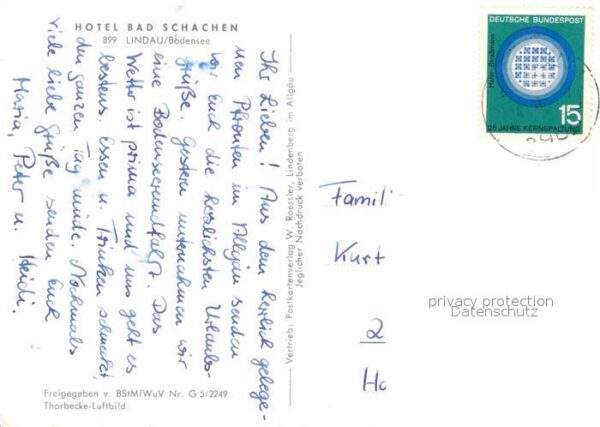 HOTEL BAD SCHACHEN
899 LINDAU/Bodensee
Ihr Lieben! Aus dem herrlich gelege-
nen Pfronten im Allgäu senden
wir Euch die herzlichsten Urlaubs-
grüße. Gestern unternahmen wir
eine Bodenseerundfahrt. Das
Wetter ist prima und uns geht es
bestens. Essen u. Trinken schmeckt,
den ganzen Tag müde. Nochmals
viele liebe Grüße senden Euch
Maria, Peter u. Heidi.
Freigegeben v. BStMfWuV Nr. G 5/2249
Thorbecke-Luftbild
Vertrieb: Postkartenverlag W. Roessler, Lindenberg im Allgäu
Jeglicher Nachdruck verboten
DEUTSCHE BUNDESPOST
Hahn-Straßmann
15
25 JAHRE KERNSPALTUNG
Famili
Kurt
privacy protection
Datenschutz
2
Ho